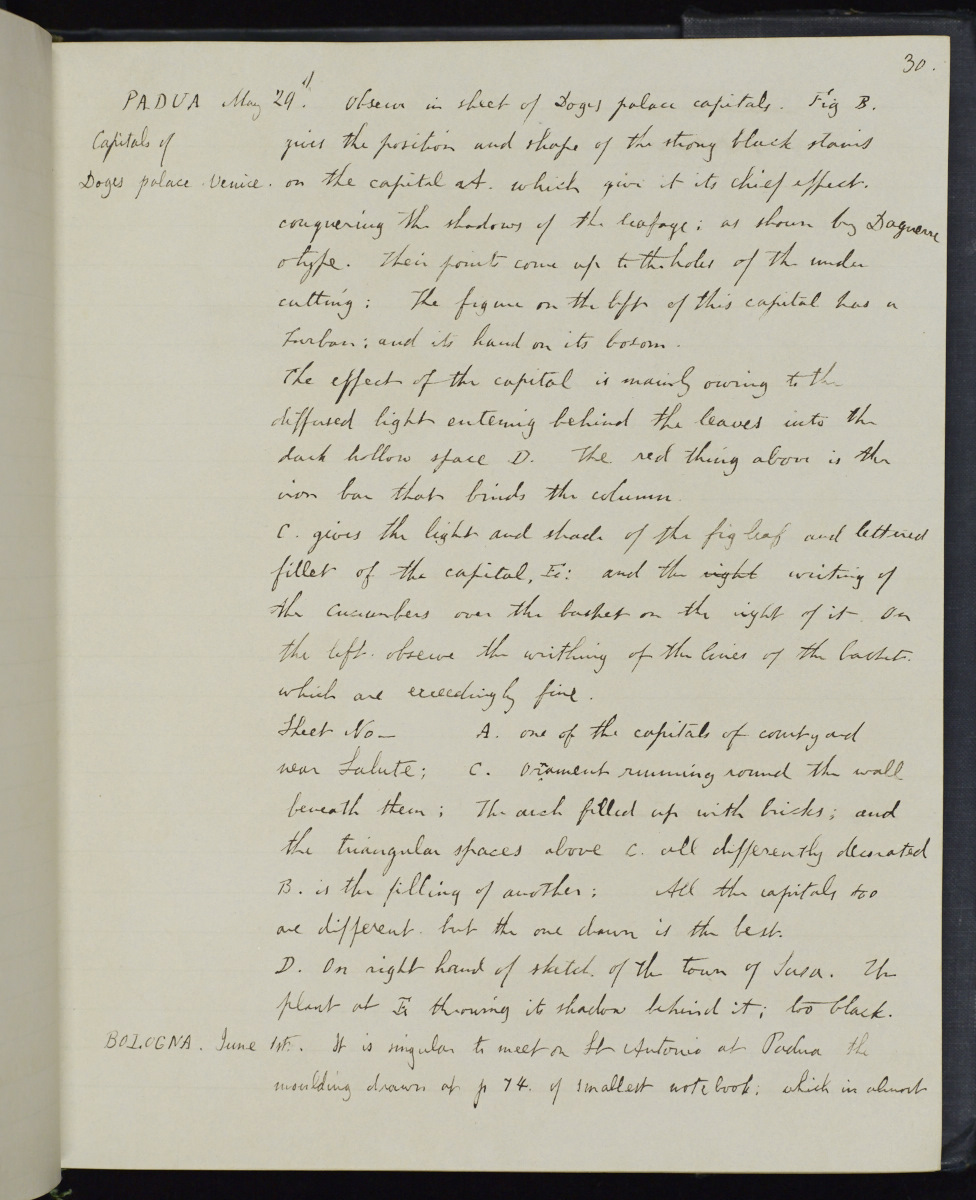 30.
PADUA May 29th. Observe in sheet of Doges palace capitals. Fig B.
Capitals of
gives the position and shape of the strong black stains
Doges palace. Venice.
on the capital at A. which give it its chief effect.
conquering the shadows of the leafage; as shown by Daguerre
otype. Their points come up to the holes of the under
cutting; The figure on the left of this capital has a
Turban; and its hand on its bosom.
The effect of the capital is mainly owing to the
diffused light entering behind the leaves into the
dark hollow space D. The red thing above is the
iron bar that binds the column
C. gives the light and shade of the fig leaf and lettered
fillet of the capital, E: and the right writing of
the cucumbers over the basket on the right of it. On
the left. observe the writhing of the lines of the basket.
which are exceedingly fine.
Sheet No— A. one of the capitals of courtyard
near Salute; C. Ornament running round the wall
beneath them; The arch filled up with bricks; and
the triangular spaces above C. all differently decorated
B. is the filling of another; All the capitals too
are different. but the one drawn is the best.
D. On right hand of sketch. of the town of Susa. The
plant at E throwing its shadow behind it; too black.
BOLOGNA. June 1st. It is singular to meet on St Antonio at Padua the
moulding drawn at p 74. of smallest note book; which in almost